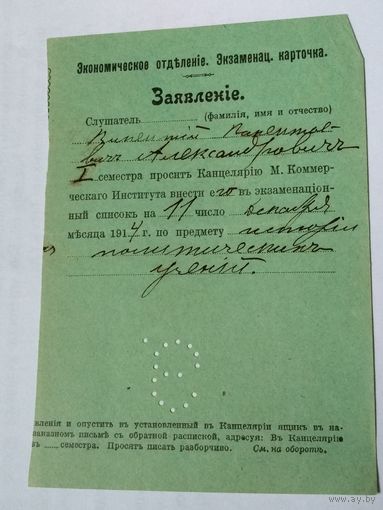 Экономическое отдѣленіе. Экзаменац. карточка.
Заявленіе.
Слушатель (фамилія, имя и отчество)
Викентій Викентье-
вичъ Александровичъ
I семестра проситъ Канцелярію М. Коммер-
ческаго Института внести его въ экзаменаціон-
ный списокъ на 11 число декабря
мѣсяца 1914 г. по предмету исторіи
политическихъ
ученій.
вленія и опустить въ установленный въ Канцеляріи ящикъ въ на-
заказномъ письмѣ съ обратной распиской, адресуя: Въ Канцелярію
въ семестра. Просятъ писать разборчиво. См. на оборотѣ.
ay.by